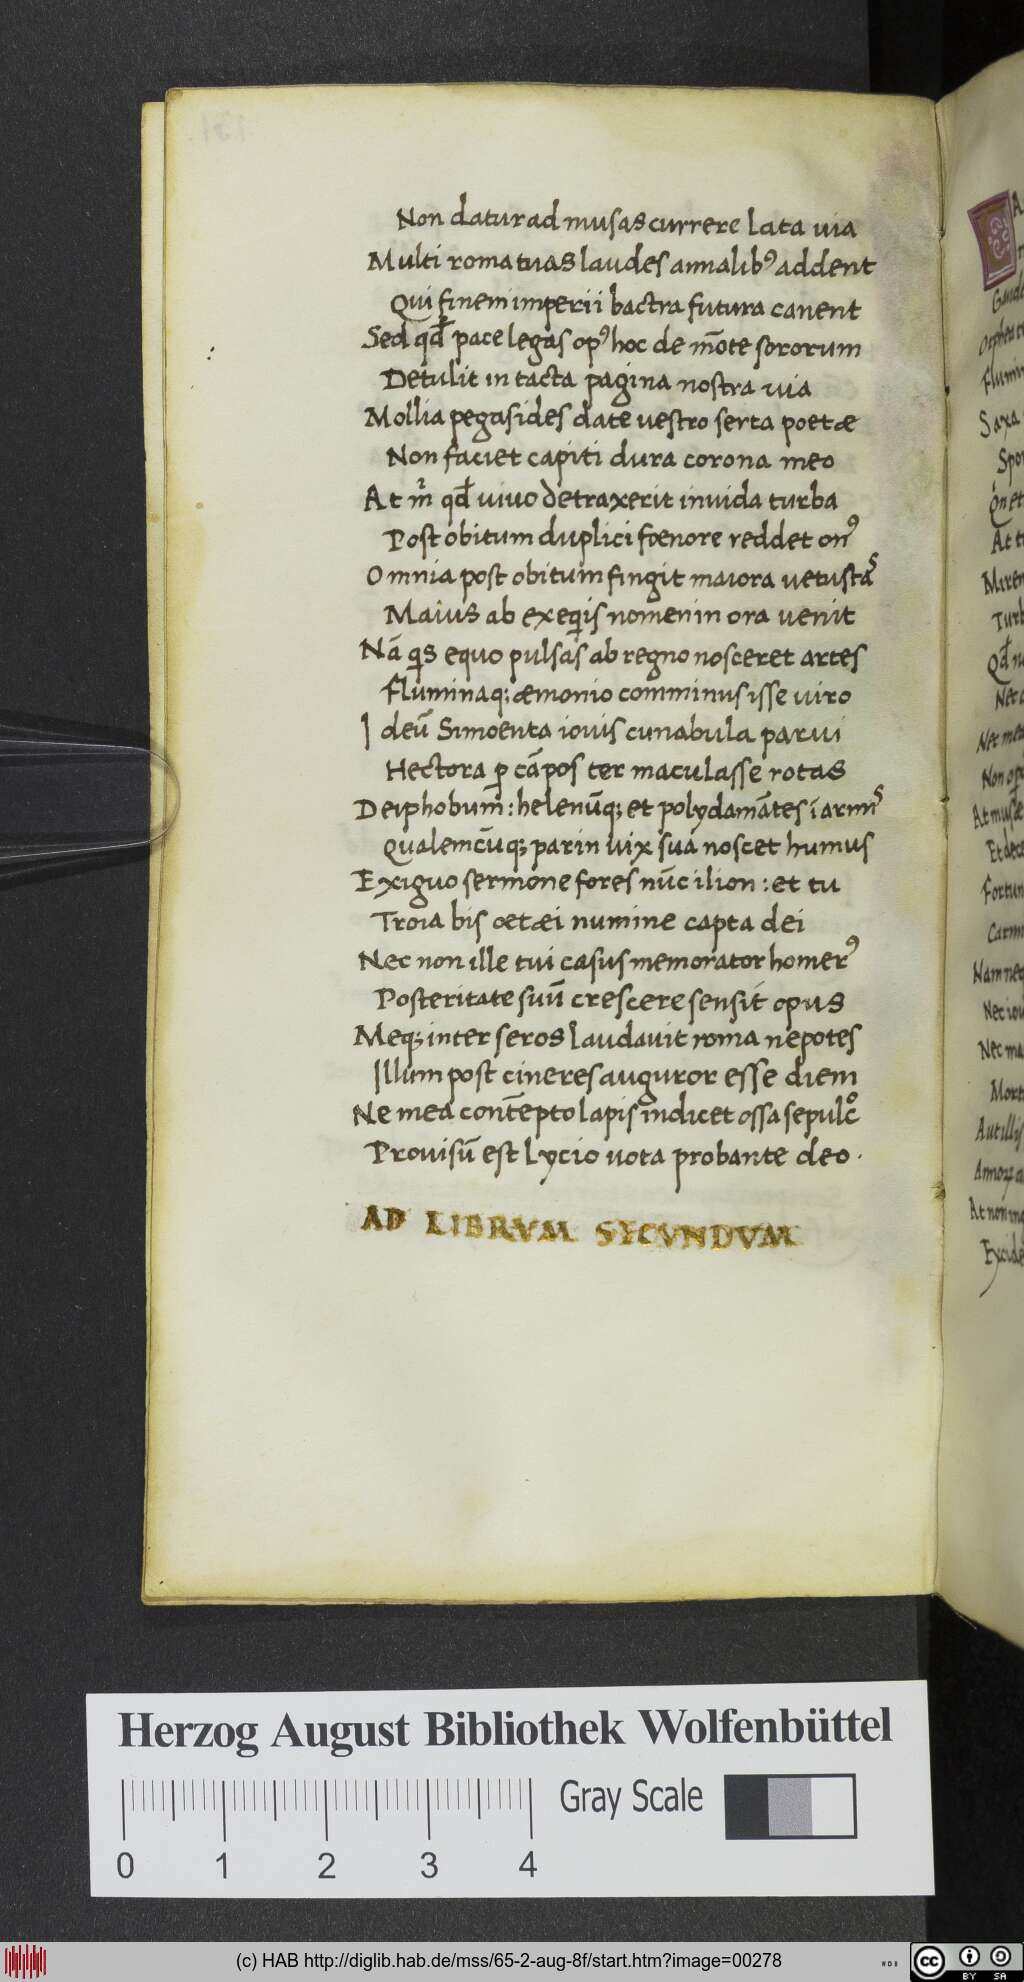 Non datur ad musas currere lata uia
Multi roma tuas laudes annalibꝰ addent
Qui finem imperii bactra futura canent
Sed qđ pace legas opꝰ hoc de mōte sororum
Detulit in tacta pagina nostra uia
Mollia pegasides date uestro serta poetæ
Non faciet capiti dura corona meo
At m̓ qđ uiuo detraxerit inuida turba
Post obitum duplici fœnore reddet onꝰ
Omnia post obitum fingit maiora uetustaˢ
Maius ab exeqis nomen in ora uenit
Nā qis equo pulsas ab regno nosceret artes
fluminaq; æmonio comminus isse uiro
Ideū Simoenta iouis cunabula parui
Hectora ꝑ cāpos ter maculasse rotas
Deiphobum: helenūq; et polydamātes ī armiˢ
Qualemcūq; parin uix sua noscet humus
Exiguo sermone fores nūc ilion: et tu
Troia bis œtæi numine capta dei
Nec non ille tui casus memorator homerꝰ
Posteritate suū crescere sensit opus
Meq; inter seros laudauit roma nepotes
Illum post cineres auguror esse diem
Ne mea contēpto lapis indicet ossa sepulcͦ
Prouisū est Lycio uota probante deo.
AD LIBRVM SECVNDVM
Saxa
Fortun
Nam neq
Nec iou
Nec ma
Mort
Aut illis
At non ing
Excide
Herzog August Bibliothek Wolfenbüttel
Gray Scale
0 1 2 3 4
(c) HAB http://diglib.hab.de/mss/65-2-aug-8f/start.htm?image=00278
WDB
cc BY SA